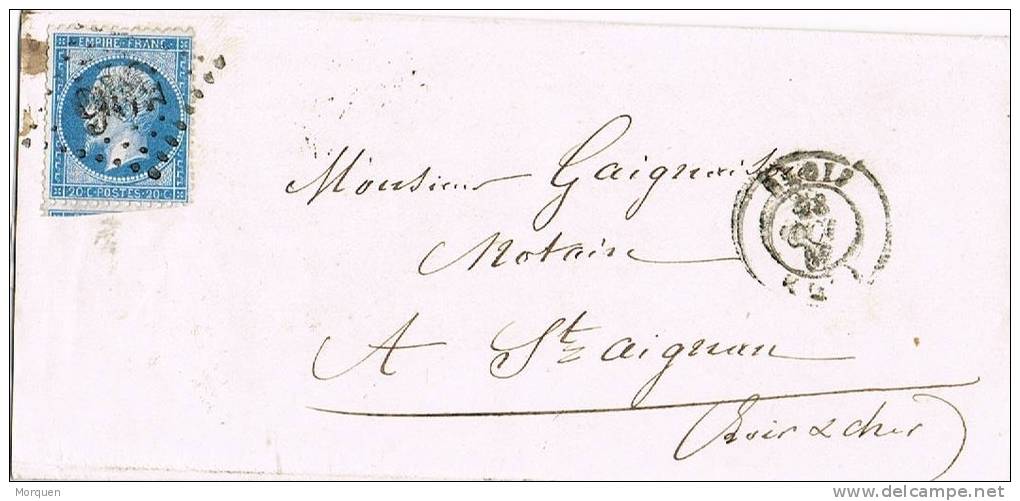 EMPIRE·FRANC·
20·C·POSTES·20·C
Monsieur
Notaire
BLOIS
A St aignan
Loir & cher
Morquen
www.delcampe.net